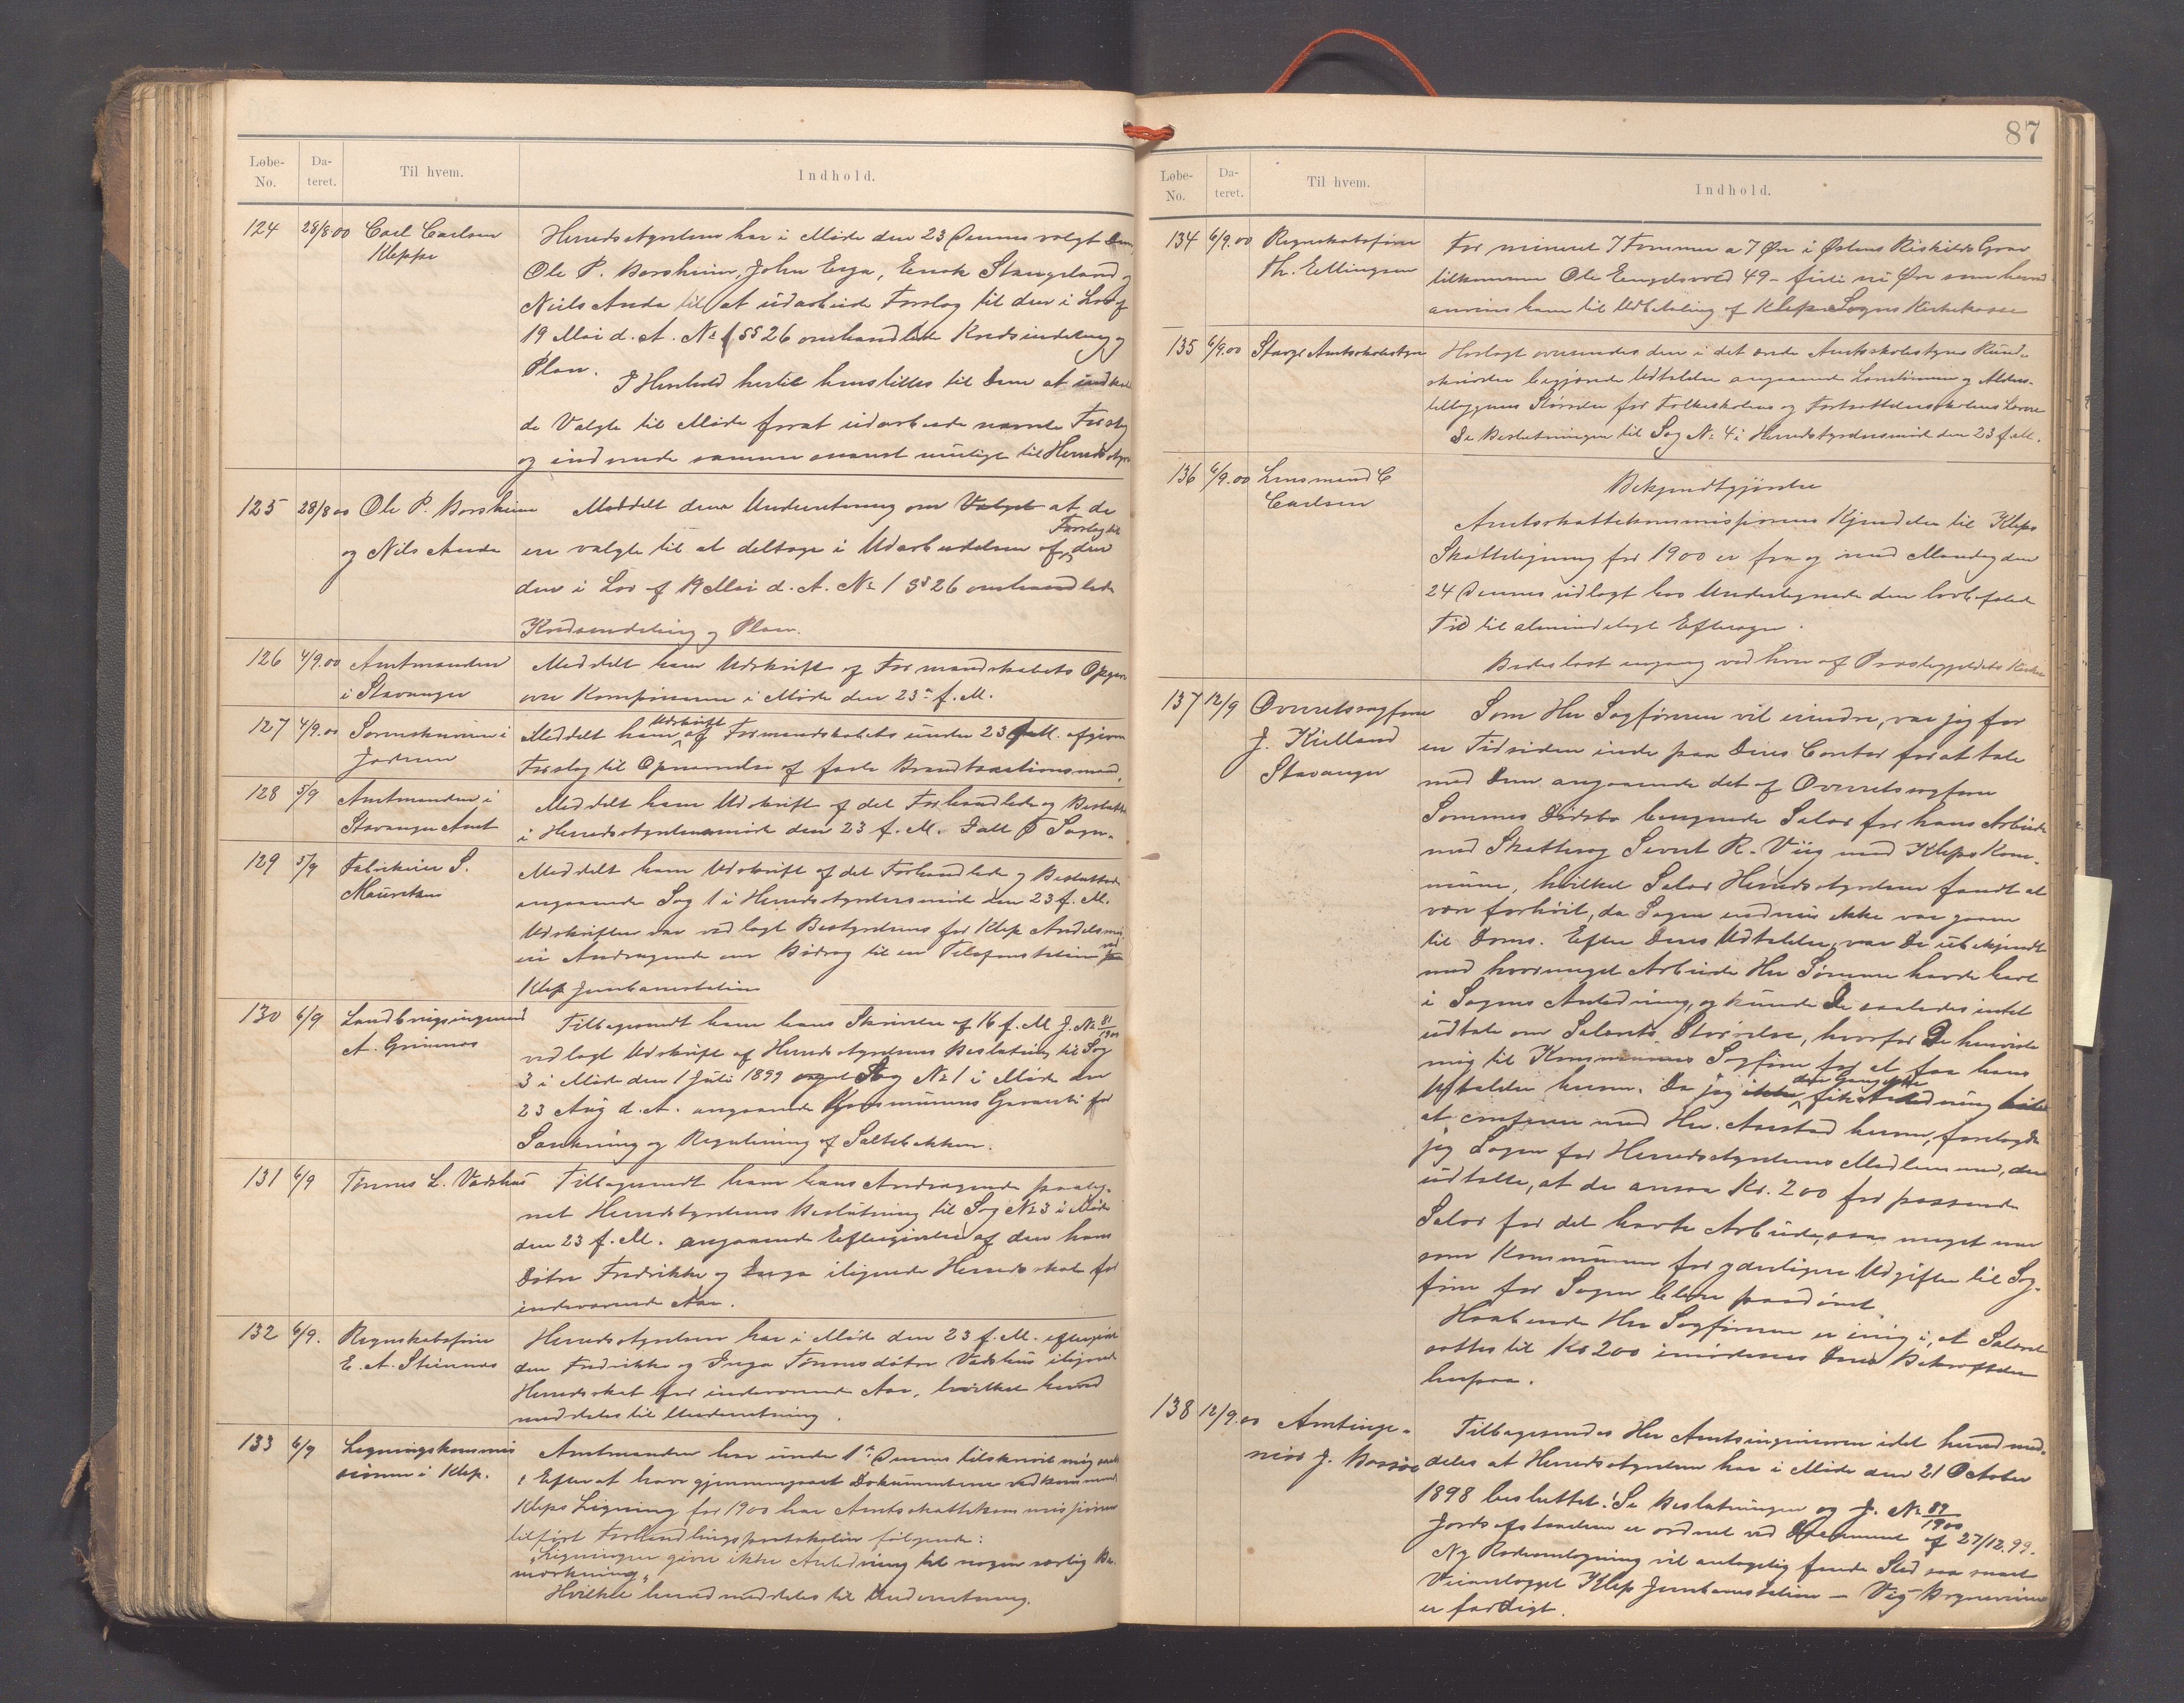 Løbe-No. Da-teret. Til hvem. Indhold.
124 28/8 00 Carl Carlsen Kleppe
Herredsstyrelsen har i Møde den 23 Dennes valgt Dem,
Ole P. Borsheim, John Erga, Enok Stangeland og
Niels Anda til at udarbeide Forslag til den i Lov af
19 Mai d. A. No 1 §§ 26 omhandlede Kredsinddeling og
Plan.
I Henhold hertil henstilles til Dem at indkalde
de Valgte til Møde forat udarbeide nævnte Forslag
og indsende samme snarest muligt til Herredsstyr
125 28/8 00 Ole P. Borsheim og Nils Anda
Meddelt dem Underretning om Valget at de
ere valgte til at deltage i Udarbeidelsen af Forslag til den
den i Lov af 19 Mai d. A. No 1 §§ 26 omhandlede
Kredsinddeling og Plan.
126 4/9.00 Amtmanden i Stavanger
Meddelt ham Udskrift af Formandskabets Opgave
over Kompisserne i Møde den 23de f. M.
127 4/9.00 Sorenskriveren i Jæderen
Meddelt ham Udskrift af Formandskabets under 23 f. M. afgivne
Forslag til Opnævnelse af faste Brandtaxtionsmænd.
128 5/9 Amtmanden i Stavanger Amt
Meddelt ham Udskrift af det Forhandlede og Besluttede
i Herredsstyrelsesmøde den 23 f. M. Ialt 8 Sager.
129 5/9 Fabrikeier S. Mauritzen
Meddelt ham Udskrift af det Forhandlede og Besluttede
angaaende Sag 1 i Herredsstyrelsesmøde den 23 f. M.
Udskriften var vedlagt Bestyrelsens for Klep Andelsmei
eri Andragende om Bidrag til en Telefonstation ved
Klep Jernbanestation
130 6/9 Landbrugsingeniør A. Grimnes
Tilbagesendt ham hans Skrivelse af 16 f. M. J. No 81/1900
vedlagt Udskrift af Herredsstyrelsens Beslutning til Sag
3 i Møde den 1 Juli 1899 og Sag No 1 i Møde den
23 Aug d. A. angaaende Kommunens Garanti for
Sænkning og Regulering af Saltebækken.
131 6/9 Tønnes L. Vadshus
Tilbagesendt ham hans Andragende paateg-
net Herredsstyrelsens Beslutning til Sag No 3 i Møde
den 23 f. M. angaaende Eftergivelse af den hans
Døtre Fredrikke og Inga ilignede Herredsskat for
indeværende Aar.
132 6/9. Regnskabsfører E. A. Steinnes
Herredsstyrelsen har i Møde den 23 f. M. eftergivet
den Fredrikke og Inga Tønnesdøtre Vadshus ilignede
Herredsskat for indeværende Aar, hvilket herved
meddeles til Underretning.
133 6/9 Ligningskommis sionen i Klep.
Amtmanden har under 1ste Dennes tilskrevet mig saal:
" Efter at have gjennemgaaet Dokumenterne vedkommende
Kleps Ligning for 1900 har Amtsskattekommissionen
tilført Forhandlingsprotokolen følgende:
"Ligningen giver ikke Anledning til nogen særlig Be-
mærkning."
Hvilket herved meddeles til Underretning.
87
Løbe-No. Da-teret. Til hvem. Indhold.
134 6/9.00 Regnskabsfører Th. Ellingsen
For mineret 7 Tommer a 7 Øre i Østens Riskilds Grav
tilkommer Ole Engelsvold 49 - førti ni Øre som herved
anvises ham til Udbetaling af Klep Sogns Kirkekasse
135 6/9.00 Stavgr Amtsskolestyre
Hoslagt oversendes den i det ærede Amtsskolestyres Rund-
skrivelse begjærede Udtalelse angaaende Lønnings og Alders-
tillæggenes Størrelse for Folkeskolens og Fortsættelsesskolens Lærere
Se Beslutningen til Sag No 4 i Herredsstyrelsesmøde den 23 f. M.
136 6/9.00 Lensmand C Carlsen
Bekjendtgjørelse
Amtsskattekommissionens Kjendelse til Kleps
Skatteligning for 1900 er fra og med Mandag den
24 Dennes udlagt hos Undertegnede den lovbefalede
Tid til almindeligt Eftersyn.
Bedes læst engang ved hver af Præstegjeldets Kirker
137 12/9 Overretssagfører J. Kielland Stavanger
Som Hr Sagføreren vil erindre, var jeg for
en Tid siden inde paa Deres Contor for at tale
med Dem angaaende det af Overretssagfører
Sømmes Dødsbo beregnede Salær for hans Arbeide
med Skattesag Sivert R. Viig mod Kleps Kom-
mune, hvilket Salær Herredsstyrelsen fandt at
være forhøit, da Sagen endnu ikke var gaaen
til Doms. Efter Deres Udtalelse, var De ubekjendt
med hvormeget Arbeide Hr Sømme havde havt
i Sagens Anledning, og kunde De saaledes intet
udtale om Salærets Størrelse, hvorfor De henviste
mig til Kommunens Sagfører for at faa hans
Udtalelse herom. Da jeg den Gang ikke fik Anledning til
at conferere med Hr. Aarstad herom, forelagde
jeg Sagen for Herredsstyrelsens Medlemmer, der
udtalte, at de ansaa Kr. 200 for passende
Salær for det havte Arbeide, saa meget mer
som Kommunen faar yderligere Udgifter til Sag-
fører før Sagen bliver paadømt.
Haabende Hr Sagføreren er enig i, at Salæret
sættes til Kr 200 imødesees Deres Bekræftelse
herpaa.
138 12/9.00 Amtinge- niør J. Bassøe
Tilbagesendes Hr Amtsingeniøren idet herved med-
deles at Herredsstyrelsen har i Møde den 21 October
1898 besluttet: Se Beslutningen og J. No 89/1900
Jordafstaaelsen er ordnet ved Document af 27/12.99.
Ny Rodeinddeling vil antagelig finde Sted saa snart
Veianlægget Klep Jernbanestation - Vig-Bryneveien
er færdigt.